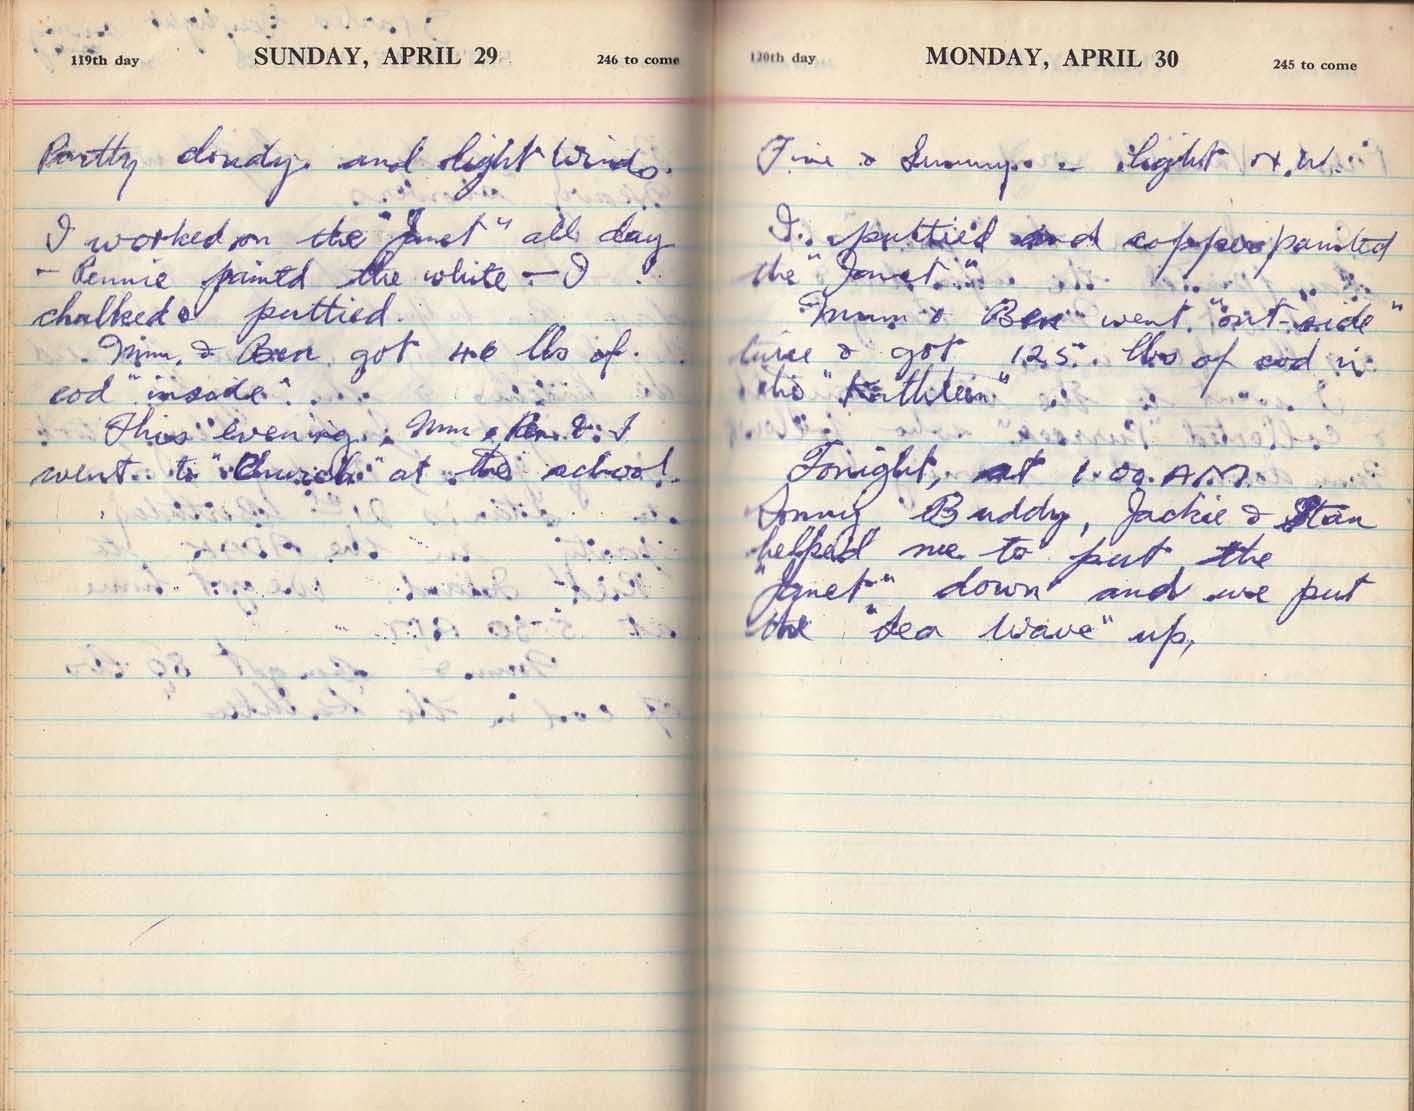 119th day SUNDAY, APRIL 29 246 to come
Partly cloudy. and slight winds.
I worked on the "Janet" all day
- Rennie painted the white - I
chalked & puttied.
Mum. & Ben got 40 lbs of
cod "inside".
This evening, Mum, Ben & I
went to "Church" at the school.
120th day MONDAY, APRIL 30 245 to come
Fine & Sunny. - slight W.
I puttied and copper painted
the "Janet."
Mum & Ben went "out-side"
twice & got 125 lbs of cod in
the "Kathleen"
Tonight, at 1.00 A.M.
Buddy, Jackie & Stan
helped me to put the
"Janet" down and we put
the "Sea Wave" up,